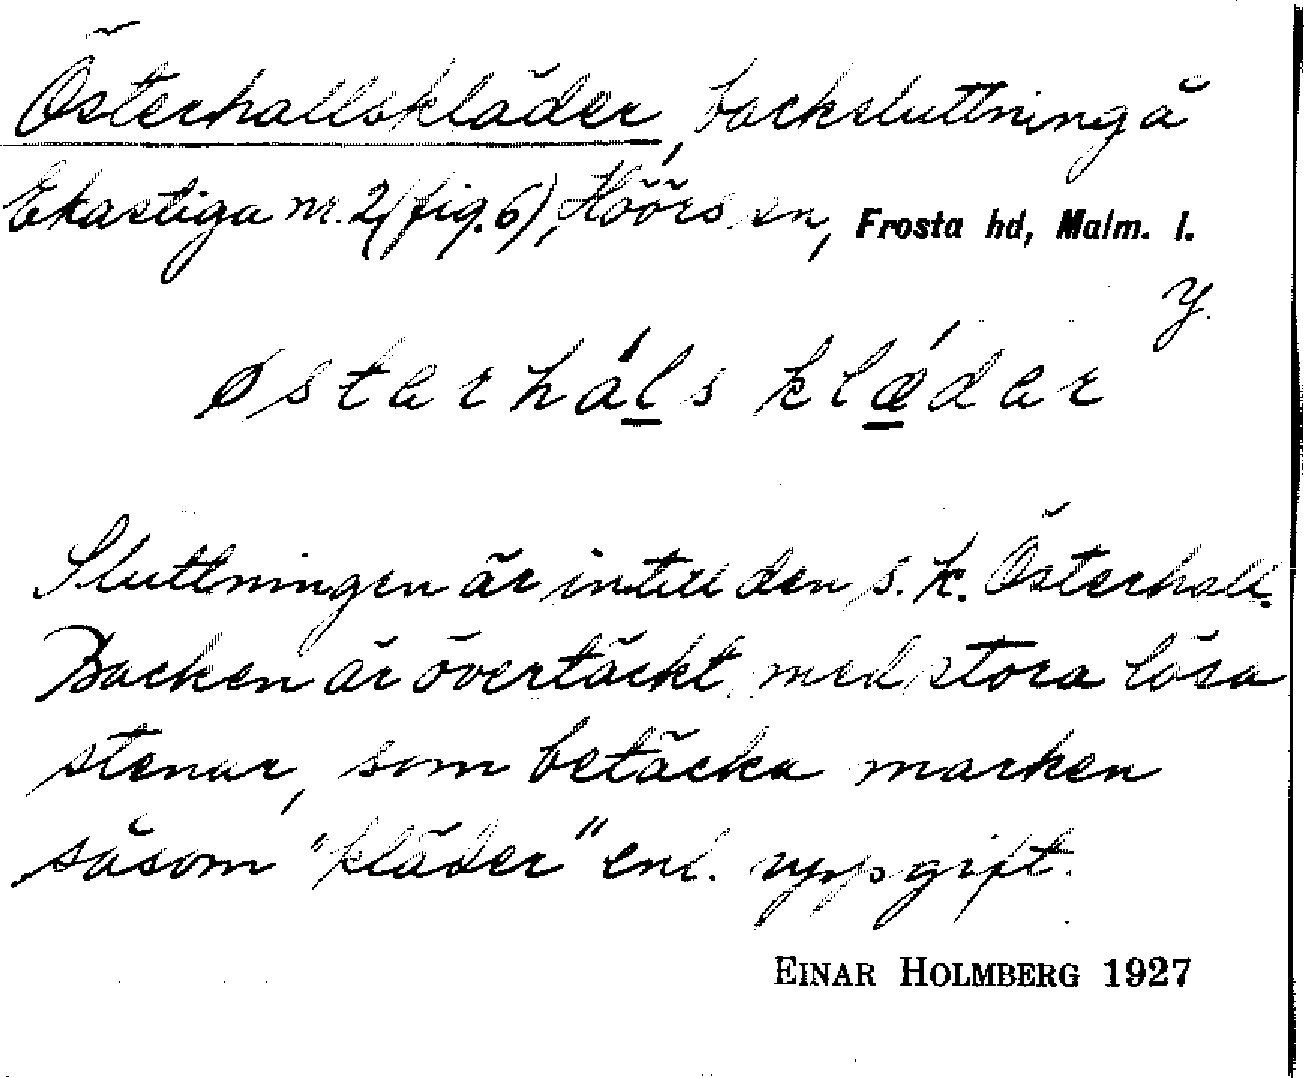 Österhallskläder, backsluttning å
Ekastiga nr. 2 (fig. 6), Höörs sn, Frosta hd, Malm. l.
y.
østarháls klǽdar
Sluttningen är intill den s. k. Österhall.
Backen är övertäckt med stora lösa
stenar, som betäcka marken
såsom "kläder" enl. uppgift.
EINAR HOLMBERG 1927